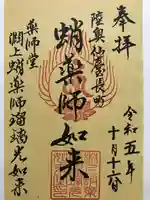 奉拝
陸奥仙臺長町
蛸薬師如来
薬師堂
蛸薬師瑠璃光如来
令和五年
十月十六日